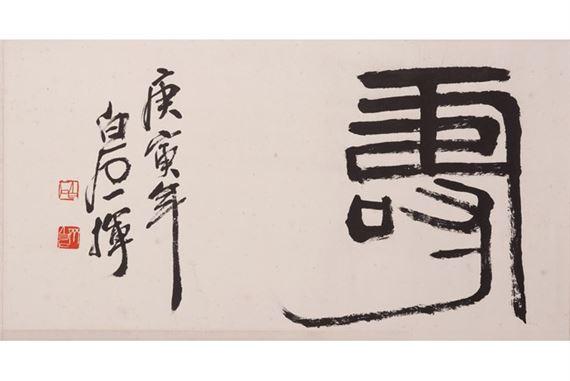 壽
庚寅年
白石一揮